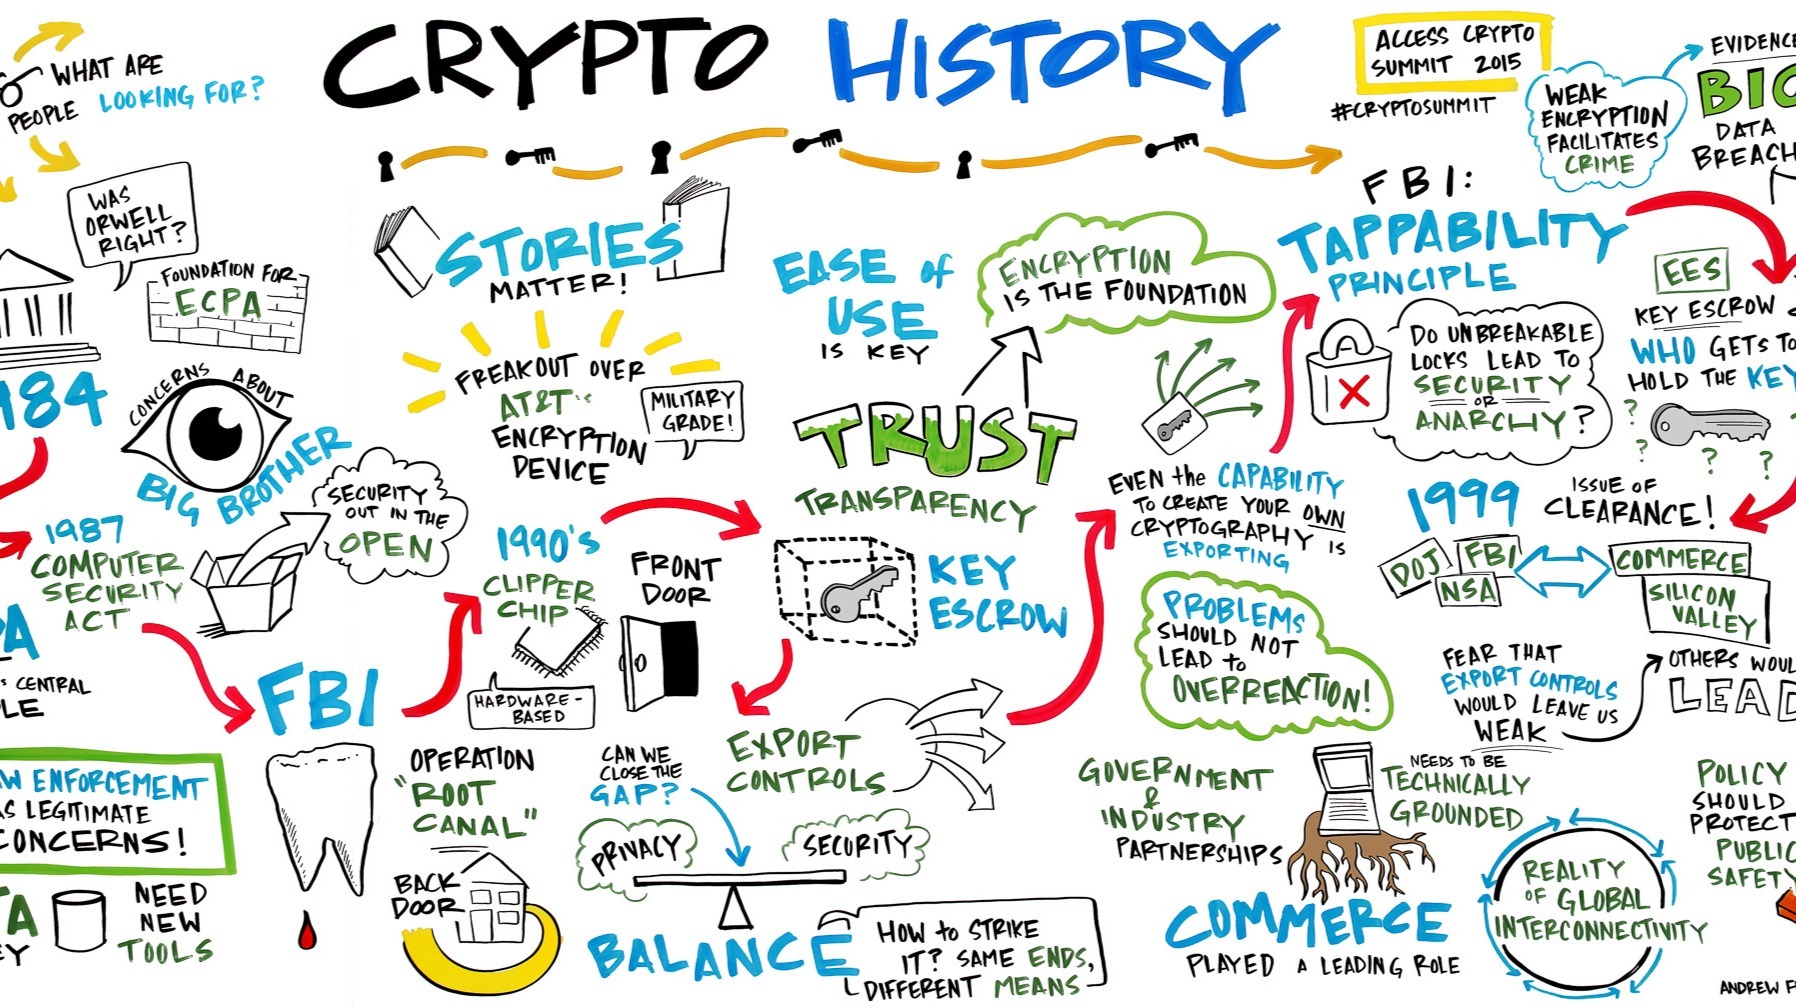 CRYPTO HISTORY
WHAT ARE
PEOPLE LOOKING FOR?
WAS
ORWELL
RIGHT?
FOUNDATION FOR
ECPA
184
CONCERNS ABOUT
BIG BROTHER
SECURITY
OUT IN THE
OPEN
1987
COMPUTER
SECURITY
ACT
CENTRAL
FBI
ENFORCEMENT
LEGITIMATE
CONCERNS!
NEED
NEW
TOOLS
STORIES
MATTER!
FREAKOUT OVER
AT&T'S
ENCRYPTION
DEVICE
MILITARY
GRADE!
1990's
CLIPPER
CHIP
HARDWARE-
BASED
FRONT
DOOR
OPERATION
"ROOT
CANAL"
BACK
DOOR
CAN WE
CLOSE THE
GAP?
PRIVACY
SECURITY
BALANCE
HOW to STRIKE
IT? SAME ENDS,
DIFFERENT MEANS
EASE of
USE
IS KEY
ENCRYPTION
IS THE FOUNDATION
TRUST
TRANSPARENCY
KEY
ESCROW
EXPORT
CONTROLS
EVEN the CAPABILITY
TO CREATE YOUR OWN
CRYPTOGRAPHY IS
EXPORTING
PROBLEMS
SHOULD NOT
LEAD to
OVERREACTION!
GOVERNMENT
&
INDUSTRY
PARTNERSHIPS
NEEDS TO BE
TECHNICALLY
GROUNDED
COMMERCE
PLAYED A LEADING ROLE
ACCESS CRYPTO
SUMMIT 2015
#CRYPTOSUMMIT
WEAK
ENCRYPTION
FACILITATES
CRIME
EVIDENCE
DATA
BREACH
FBI:
TAPPABILITY
PRINCIPLE
DO UNBREAKABLE
LOCKS LEAD TO
SECURITY
OR
ANARCHY?
EES
KEY ESCROW
WHO GETS TO
HOLD THE KEY
? ? ? ?
1999
ISSUE OF
CLEARANCE!
DOJ FBI
NSA
COMMERCE
SILICON
VALLEY
FEAR THAT
EXPORT CONTROLS
WOULD LEAVE US
WEAK
OTHERS WOUL
LEAD
REALITY
OF GLOBAL
INTERCONNECTIVITY
POLICY
SHOULD
PROTECT
PUBLIC
SAFETY
ANDREW